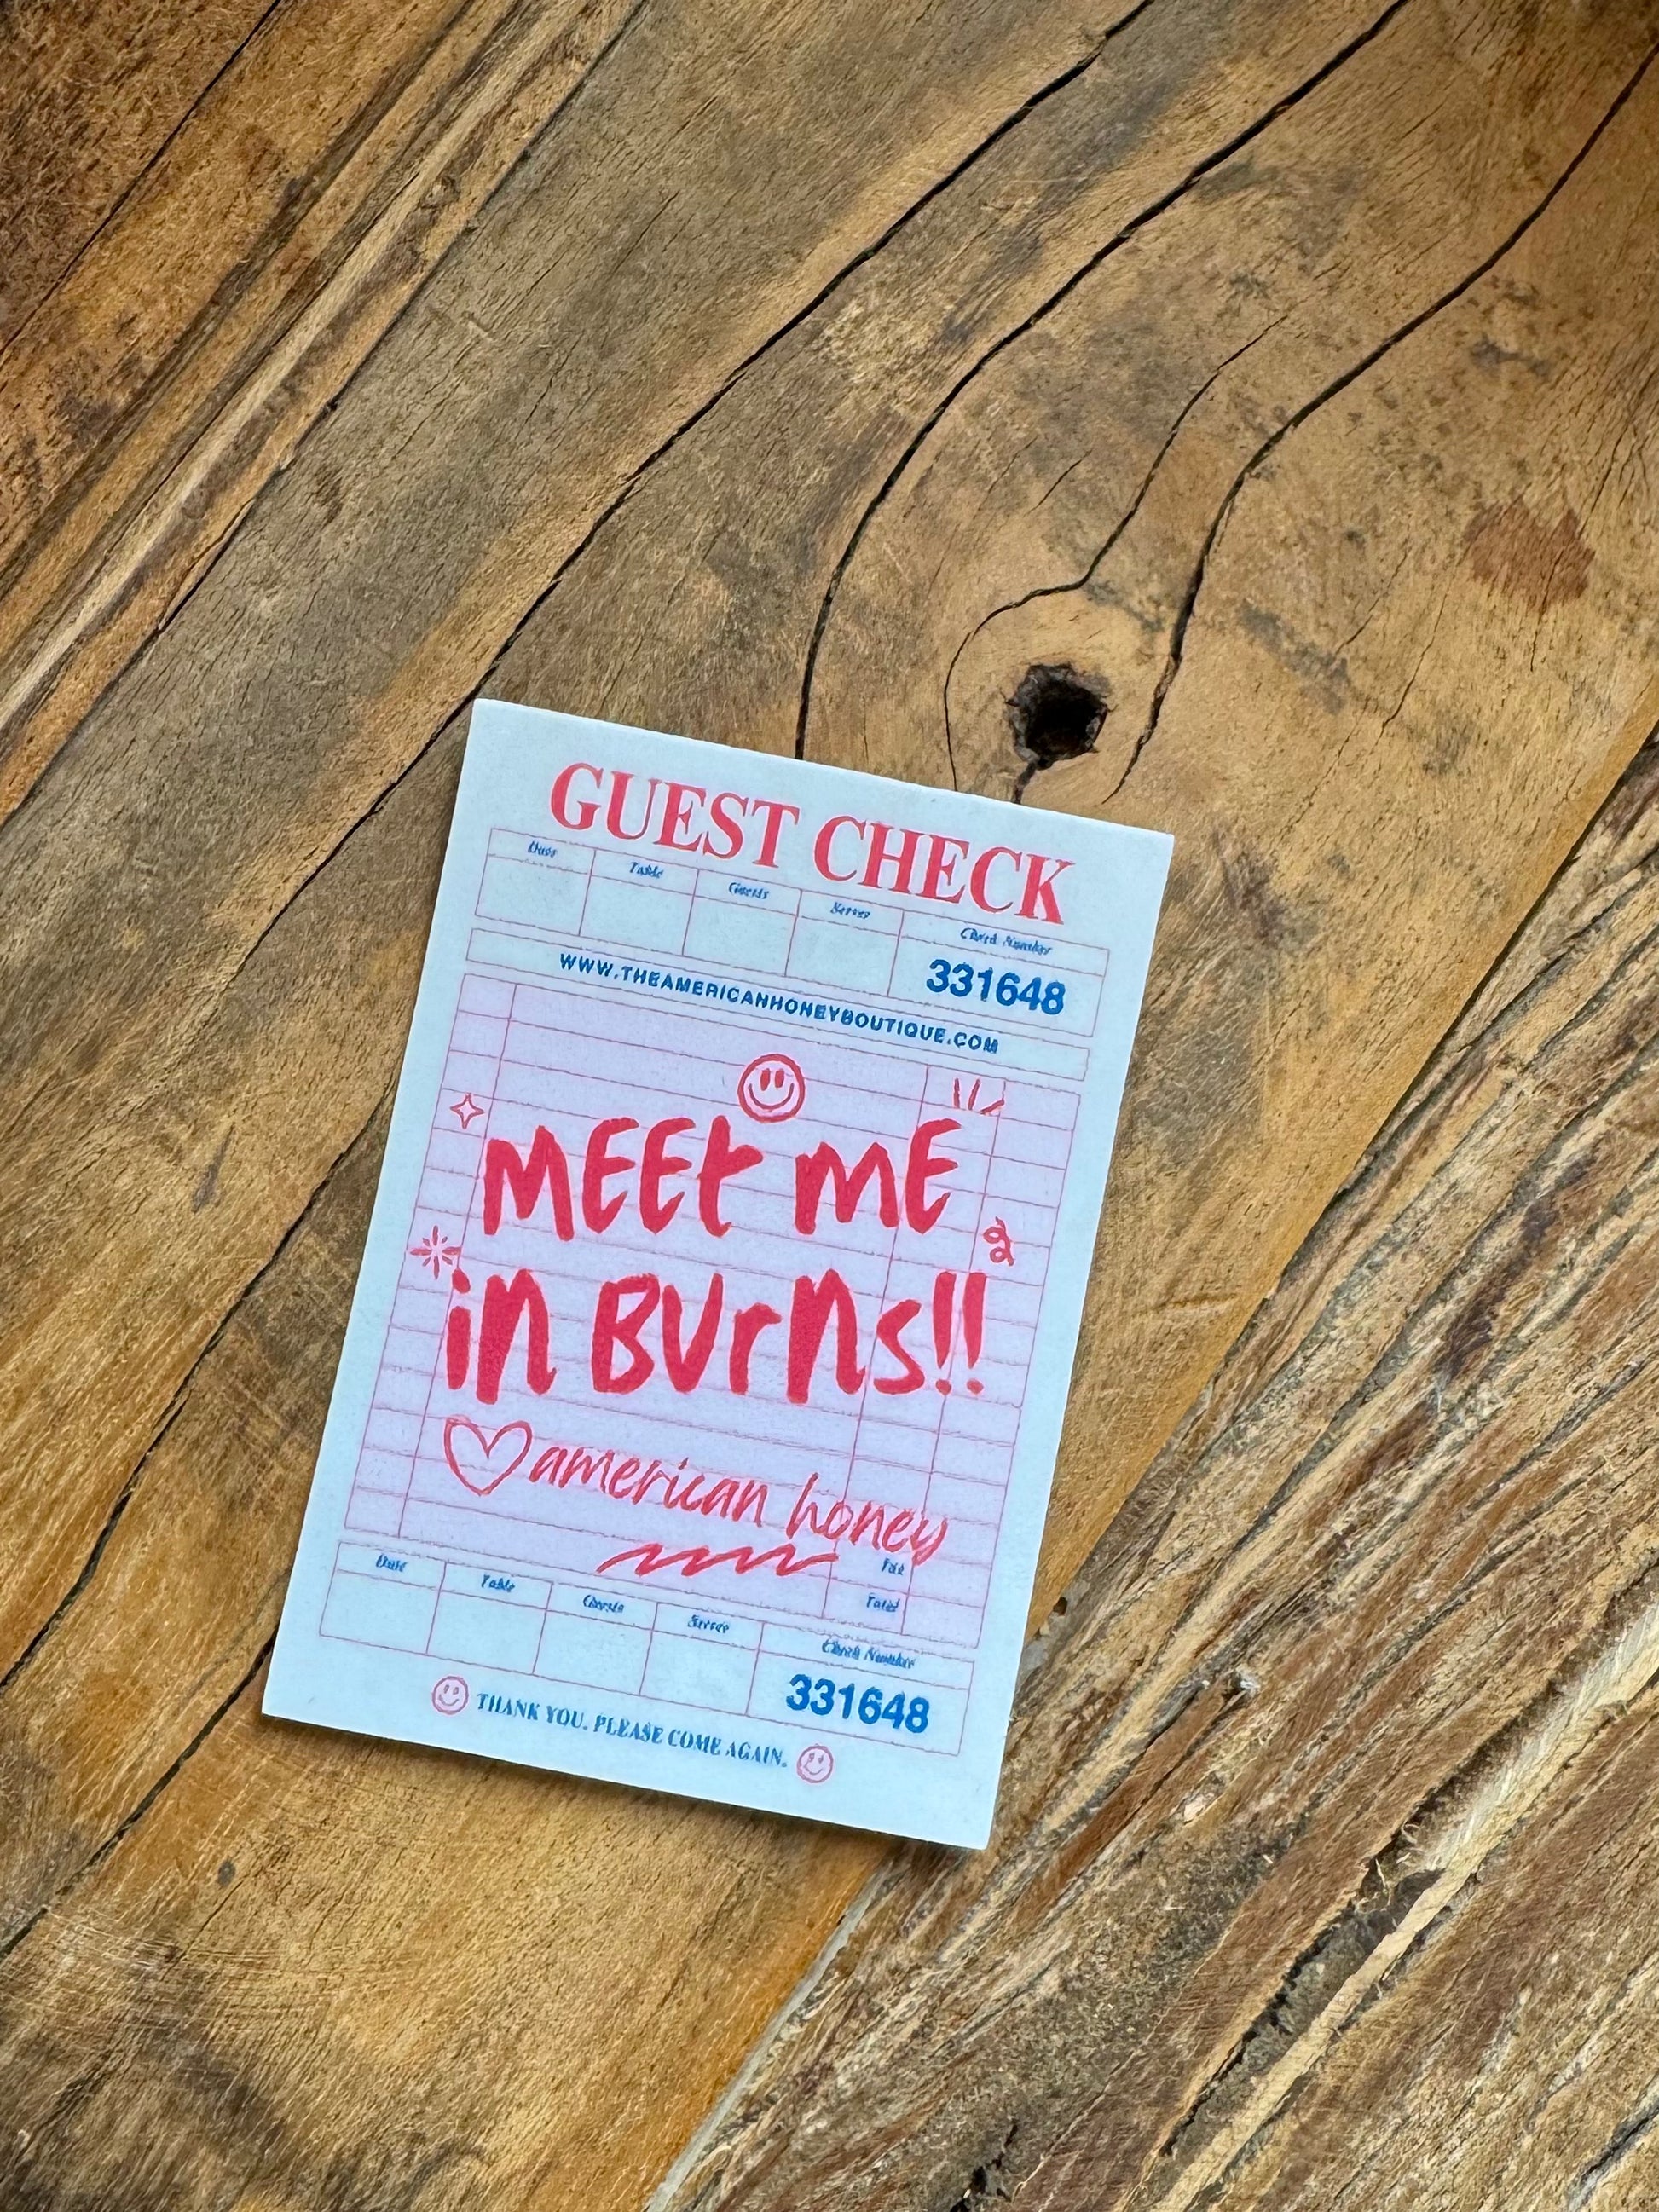 GUEST CHECK
Date Table Guests Server Check Number
331648
WWW.THEAMERICANHONEYBOUTIQUE.COM
MEEt mE
in BUrns!!
american honey
Tax
Total
Date Table Guests Server Check Number
331648
THANK YOU. PLEASE COME AGAIN.